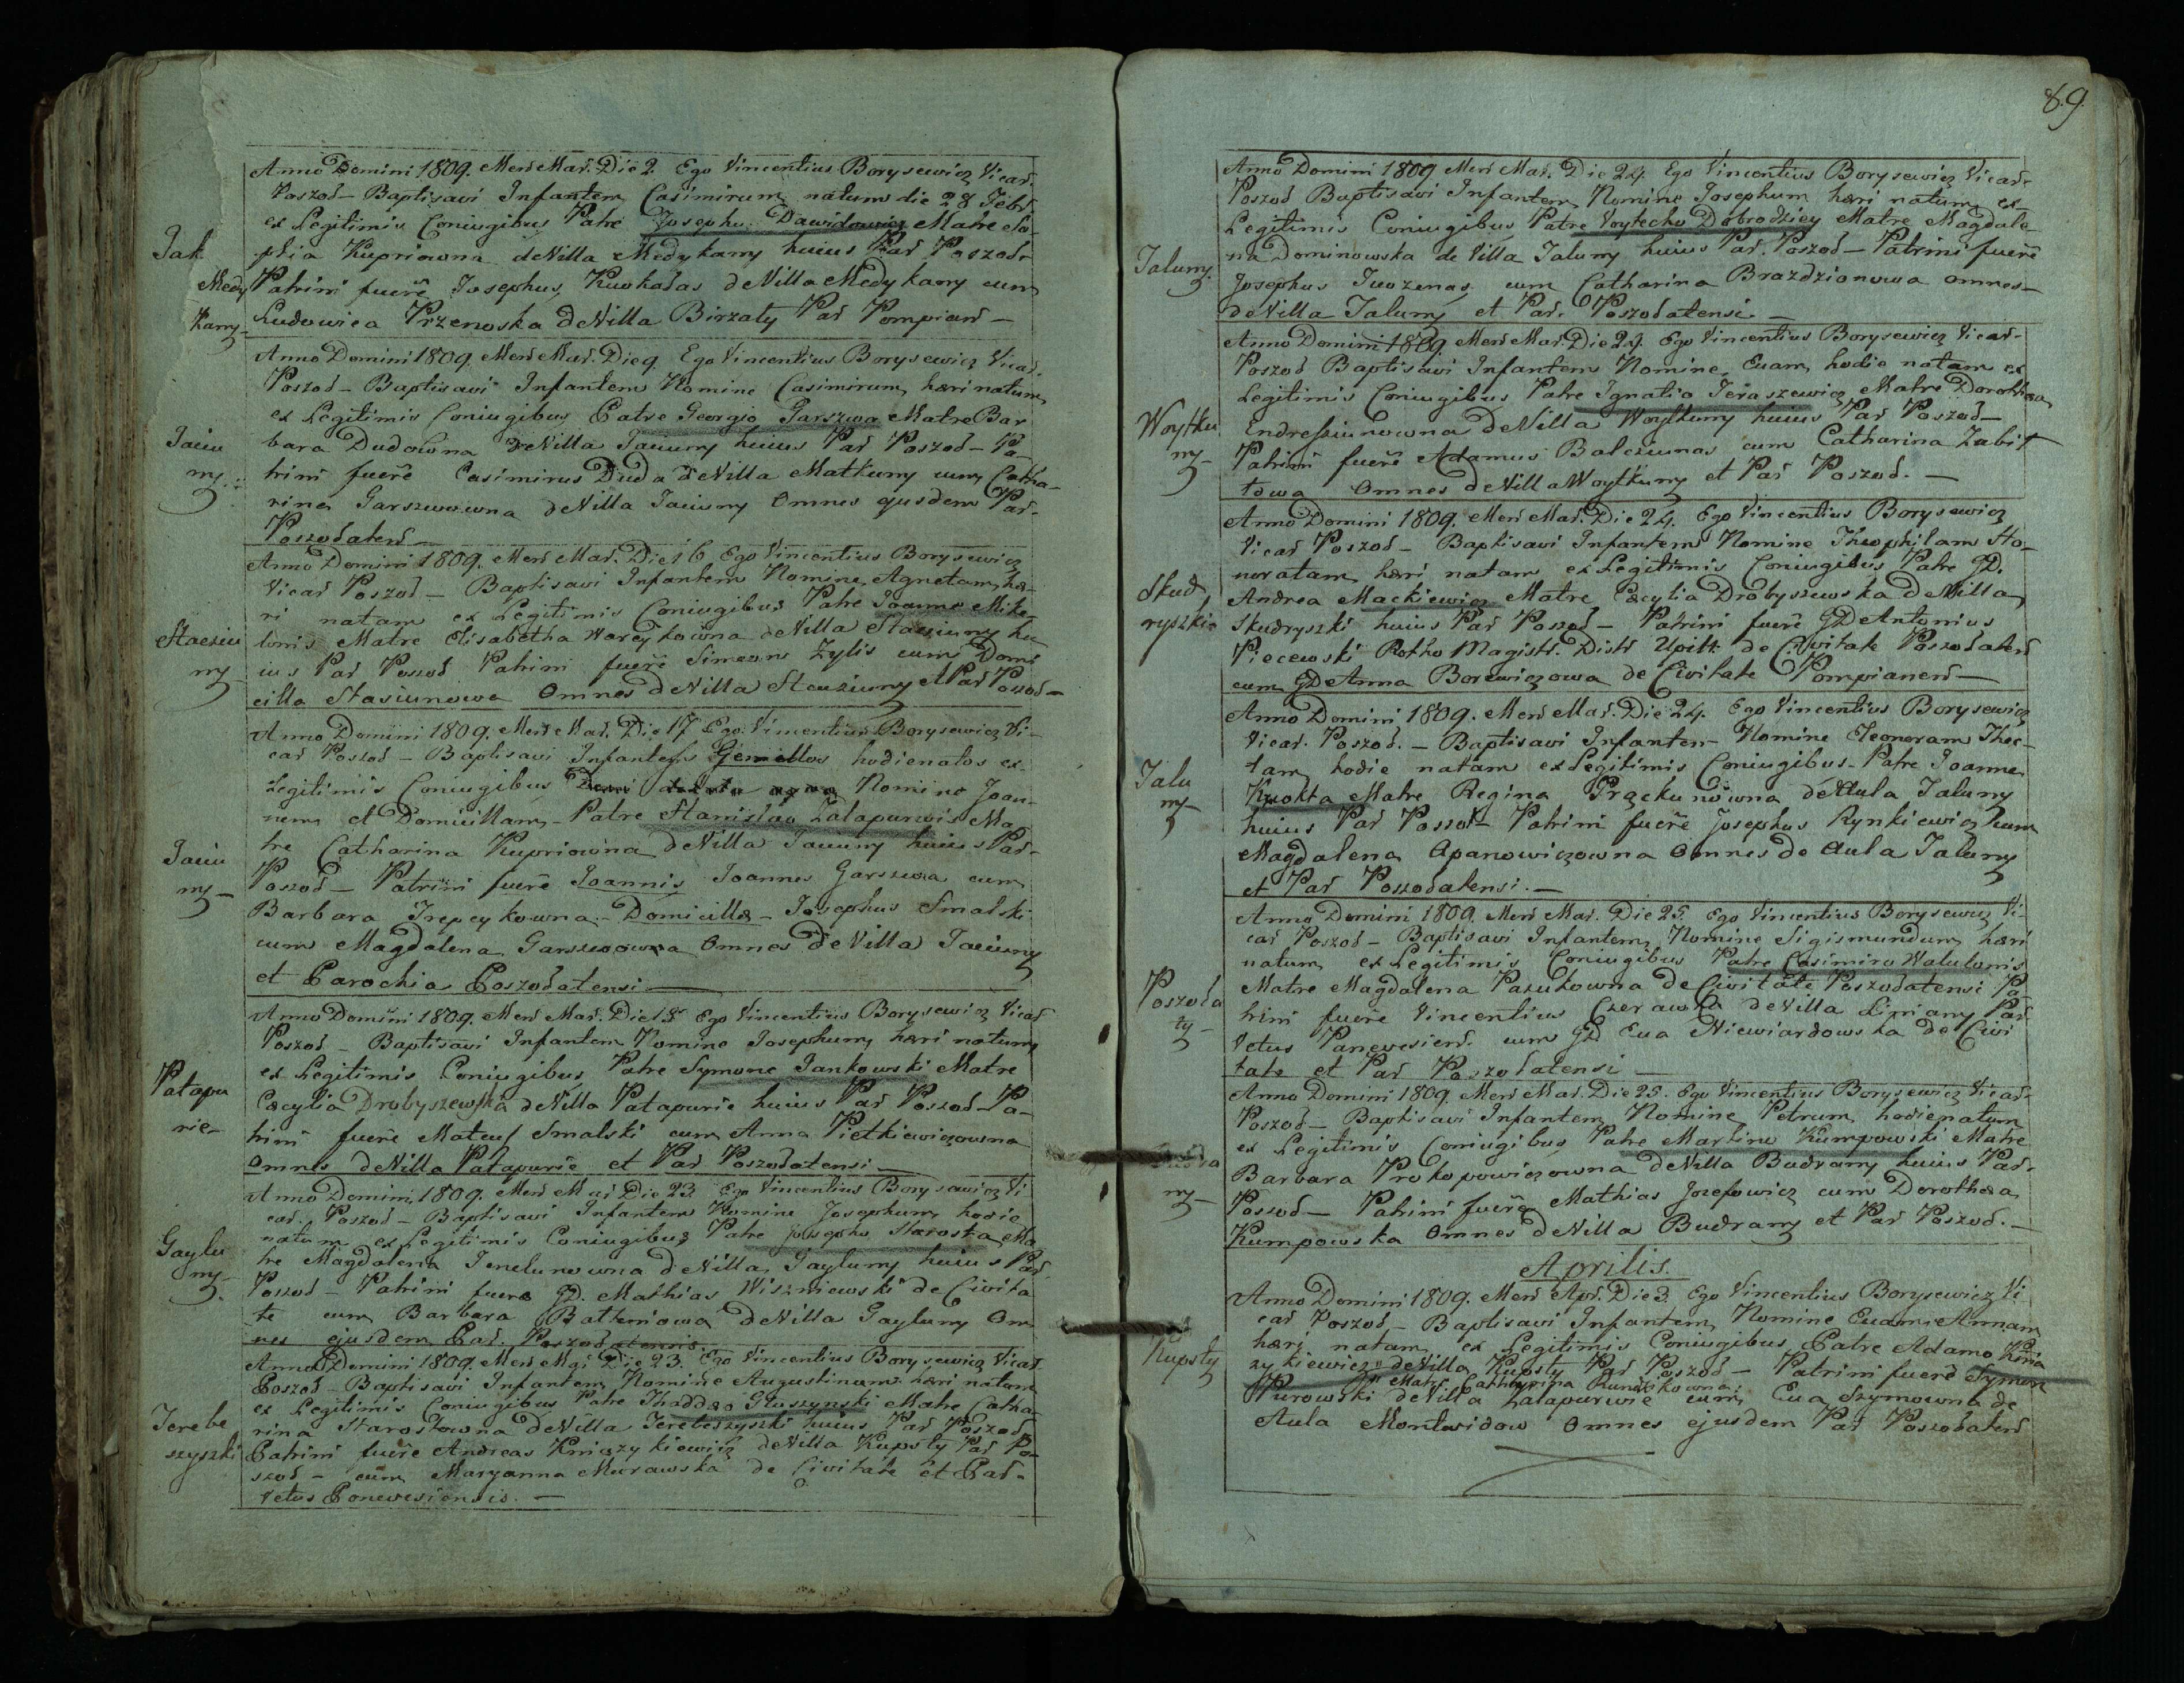 Jak
Medy
kany-
Anno Domini 1809. Mens Mar. Die 2. Ego Vincentius Borysewicz Vicar.
Poszod- Baptisavi Infantem Casimirum natum die 28 Febr
ex Legitimis Coniugibus Patre Josepho Dawidowicz Matre So-
phia Kupriowna de Villa Medykany huius Par Poszod-
Patrini fuere Josephus Kuokalas de Villa Medykany cum
Ludowica Przenoska de Villa Birzaty Par Pompian-
Jaciu
ny-
Anno Domini 1809. Mens Mar. Die 9. Ego Vincentius Borysewicz Vicar.
Poszod- Baptisavi Infantem Nomine Casimirum, heri natum
ex Legitimis Coniugibus Patre Georgio Garszwa Matre Bar
bara Dudowna de Villa Jaciuny huius Par Poszod- Pa-
trini fuere Casimirus Duda de Villa Matkuny cum Catha-
rina Garszwowna de Villa Jaciuny Omnes ejusdem Par-
Poszodatens-
Staciu
ny-
Anno Domini 1809. Mens Mar. Die 16 Ego Vincentius Borysewicz
Vicar Poszod- Baptisavi Infantem Nomine Agnetam, he-
ri natam ex Legitimis Coniugibus Patre Joanne Mike-
lonis Matre Elisabetha Wareykowna de Villa Staciuny hu
ius Par Poszod Patrini fuere Simeon Zylis cum Domi
cilla Stasiunowa Omnes de Villa Staciuny et Par Poszod-
Jaciu
ny-
Anno Domini 1809. Mens Mar. Die 17 Ego Vincentius Borysewicz Vi-
car Poszod- Baptisavi Infantes Gemellos hodie natos ex
Legitimis Coniugibus Nomine Joan-
nem et Domicillam- Patre Stanislao Zatapurwis Ma-
tre Catharina Kupriowna de Villa Jaciuny huius Par-
Poszod- Patrini fuere Joannis Joannes Garszwa cum
Barbara Trepeykowna- Domicilla- Josephus Smalski
cum Magdalena Garszwowna Omnes de Villa Jaciuny
et Parochia Poszodatensi-
Patapu
rie-
Anno Domini 1809. Mens Mar. Die 18 Ego Vincentius Borysewicz Vicar
Poszod- Baptisavi Infantem Nomine Josephum, heri natum
ex Legitimis Coniugibus Patre Symone Jankowski Matre
Cæcylia Drobyszewska de Villa Patapurie huius Par Poszod- Pa-
trini fuere Mateus Smalski cum Anna Pietkiewiczowna
Omnes de Villa Patapurie et Par Poszodatensi-
Gaylu
ny-
Anno Domini 1809. Mens Mar Die 23. Ego Vincentius Borysewicz Vi
car. Poszod- Baptisavi Infantem Nomine Josephum, hodie
natum ex Legitimis Coniugibus Patre Josepho Starosta, Ma
tre Magdalena Jenelunowna de Villa Gayluny huius Par.
Poszod- Patrini fuere GD. Mathias Wiszniewski de Civita
te cum Barbara Baltuniowa de Villa Gayluny Om
nes ejusdem Par. Poszodatensis.
Jerebe
szyszki
Anno Domini 1809. Mens Mar Die 23. Ego Vincentius Borysewicz Vicar.
Poszod- Baptisavi Infantem Nomine Augustinum heri natum
ex Legitimis Coniugibus Patre Thaddæo Gluszynski Matre Catha-
rina Starostowna de Villa Jerebeszyszki huius Par Poszod.
Patrini fuere Andreas Kniazykiewicz de Villa Kupsty Par Po-
szod- cum Maryanna Murawska de Civitate et Par-
Vetus Ponevesiensis.-
89.
Jaluny.
Anno Domini 1809 Mens Mar. Die 24. Ego Vincentius Borysewicz Vicar-
Poszod Baptisavi Infantem Nomine Josephum heri natum ex
Legitimis Coniugibus Patre Woytecho Dobrodziey Matre Magdale-
na Dominowska de Villa Jaluny huius Par. Poszod- Patrini fuere
Josephus Iwozenas cum Catharina Brazdzionowa omnes-
de Villa Jaluny et Par. Poszodatensi.-
Woytku
ny-
Anno Domini 1809. Mens Mar. Die 24. Ego Vincentius Borysewicz Vicar-
Poszod Baptisavi Infantem Nomine Evam, hodie natam ex
Legitimis Coniugibus Patre Ignatio Jeraszewicz Matre Dorothea
Endressiunowna de Villa Woytkuny huius Par Poszod-
Patrini fuere Adamus Balcziunas cum Catharina Zabit
towa Omnes de Villa Woytkuny et Par Poszod.-
Skud
ryszki-
Anno Domini 1809. Mens Mar. Die 24. Ego Vincentius Borysewicz
Vicar Poszod- Baptisavi Infantem Nomine Theophilam Ho-
noratam heri natam ex Legitimis Coniugibus Patre GD.
Andrea Mackiewicz Matre Cæcylia Drobyszewska de Villa
Skudryszki huius Par Poszod- Patrini fuere GD Antonius
Piecewski Rotho Magistr. Distr Upitt. de Civitate Poszodatens
cum GD Anna Borewiczowa de Civitate Pompianens-
Jalu
ny-
Anno Domini 1809. Mens Mar. Die 24. Ego Vincentius Borysewicz
Vicar. Poszod.- Baptisavi Infantem Nomine Eleonoram Thec-
lam, hodie natam ex Legitimis Coniugibus- Patre Joanne
Kuokta Matre Regina Prackunowna de Aula Jaluny
huius Par Poszod- Patrini fuere Josephus Rynkiewicz cum
Magdalena Apanowiczowna Omnes de Aula Jaluny
et Par Poszodatensi.-
Poszoda
ty-
Anno Domini 1809. Mens Mar. Die 25. Ego Vincentius Borysewicz Vi-
car Poszod- Baptisavi Infantem, Nomine Sigismundum heri
natum ex Legitimis Coniugibus Patre Casimiro Walulonis
Matre Magdalena Pazukowna de Civitate Poszodatensi Pa-
trini fuere Vincentius Czerawka de Villa Liniany Par
Vetus Ponevesiens. cum GD Eva Niewiardowska de Civi
tate et Par Poszodatensi-
ny-
Anno Domini 1809. Mens Mar. Die 25. Ego Vincentius Borysewicz Vicar-
Poszod- Baptisavi Infantem, Nomine Petrum hodie natum
ex Legitimis Coniugibus Patre Martino Kumpowski Matre
Barbara Prokopowiczowna de Villa Budrany huius Par.
Poszod- Patrini fuere Mathias Jozefowicz cum Dorothea
Kumpowska Omnes de Villa Budrany et Par Poszod.-
Aprilis.
Kupsty
Anno Domini 1809. Mens Apr. Die 3. Ego Vincentius Borysewicz Vi
car Poszod- Baptisavi Infantem, Nomine Evam Annam
heri natam ex Legitimis Coniugibus Patre Adamo Knia
zykiewicz de Villa Kupsty Par Poszod- Patrini fuere Symon
Matre Catharina
Purowski de Villa Patapurwie cum Eva Szymowna de
Aula Montwidow Omnes ejusdem Par Poszodatens